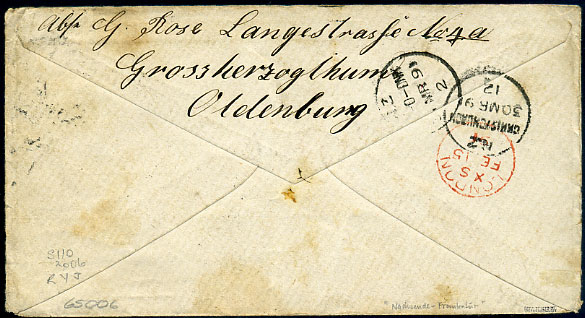 Abs G. Rose Langestrasse No 4a
Grossherzogthum
Oldenburg
2
MR 91
CHRISTCHURCH
30 MR 91
12
N.Z
LONDON
X S
FE 15
91
S110
2006
RYJ
65006
"Nachsende-Frankatur"